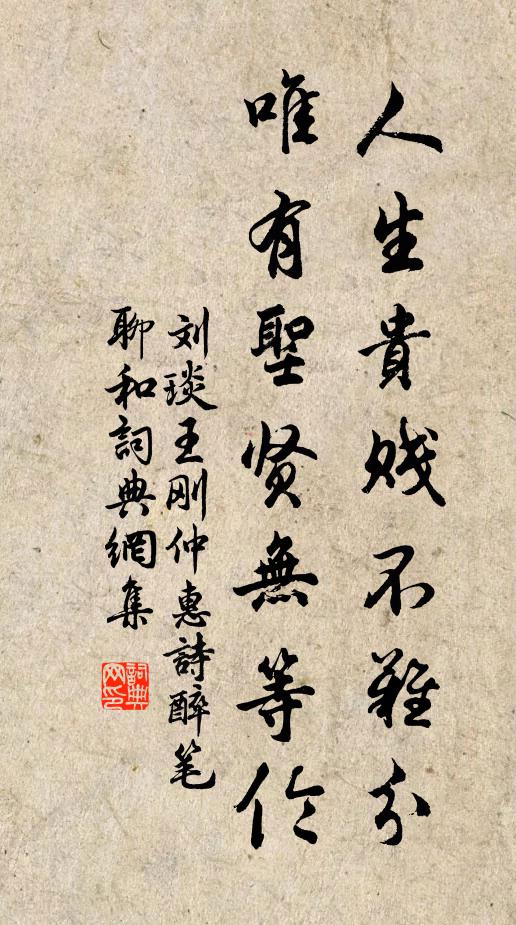 人生貴贱不難分
唯有聖贤無等伦
刘琰王刚仲惠詩醉笔
聊和詞典網集
詞典网印